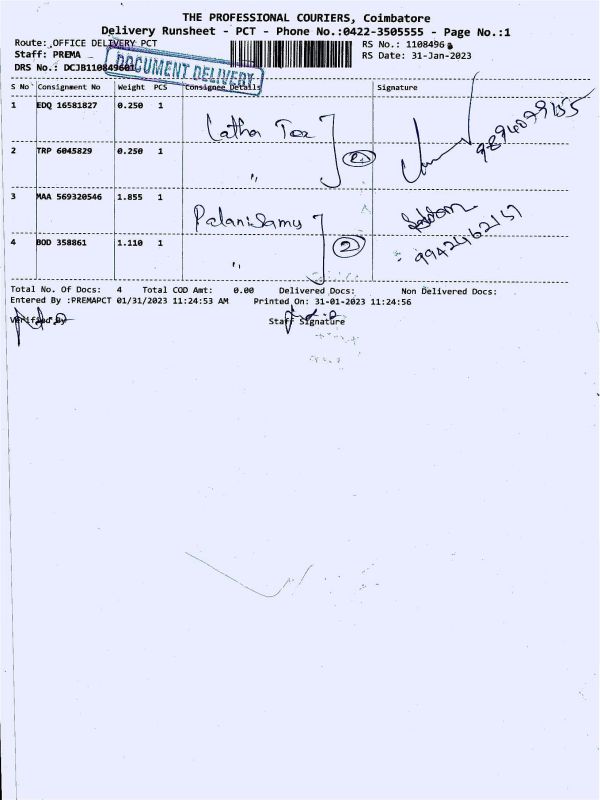 THE PROFESSIONAL COURIERS, Coimbatore
Delivery Runsheet - PCT - Phone No.:0422-3505555 - Page No.:1
Route: OFFICE DELIVERY PCT
RS No.: 1108496
Staff: PREMA
RS Date: 31-Jan-2023
DRS No.: DCJB110849601
DOCUMENT DELIVERY
S No Consignment No Weight PCS Consignee Details Signature
1 EDQ 16581827 0.250 1
Latha Tex
9894099155
2 TRP 6045829 0.250 1
"
3 MAA 569320546 1.855 1
Palanisamy
2
9942462157
4 BOD 358861 1.110 1
"
Total No. Of Docs: 4 Total COD Amt: 0.00 Delivered Docs: Non Delivered Docs:
Entered By :PREMAPCT 01/31/2023 11:24:53 AM Printed On: 31-01-2023 11:24:56
Verified By
Staff Signature